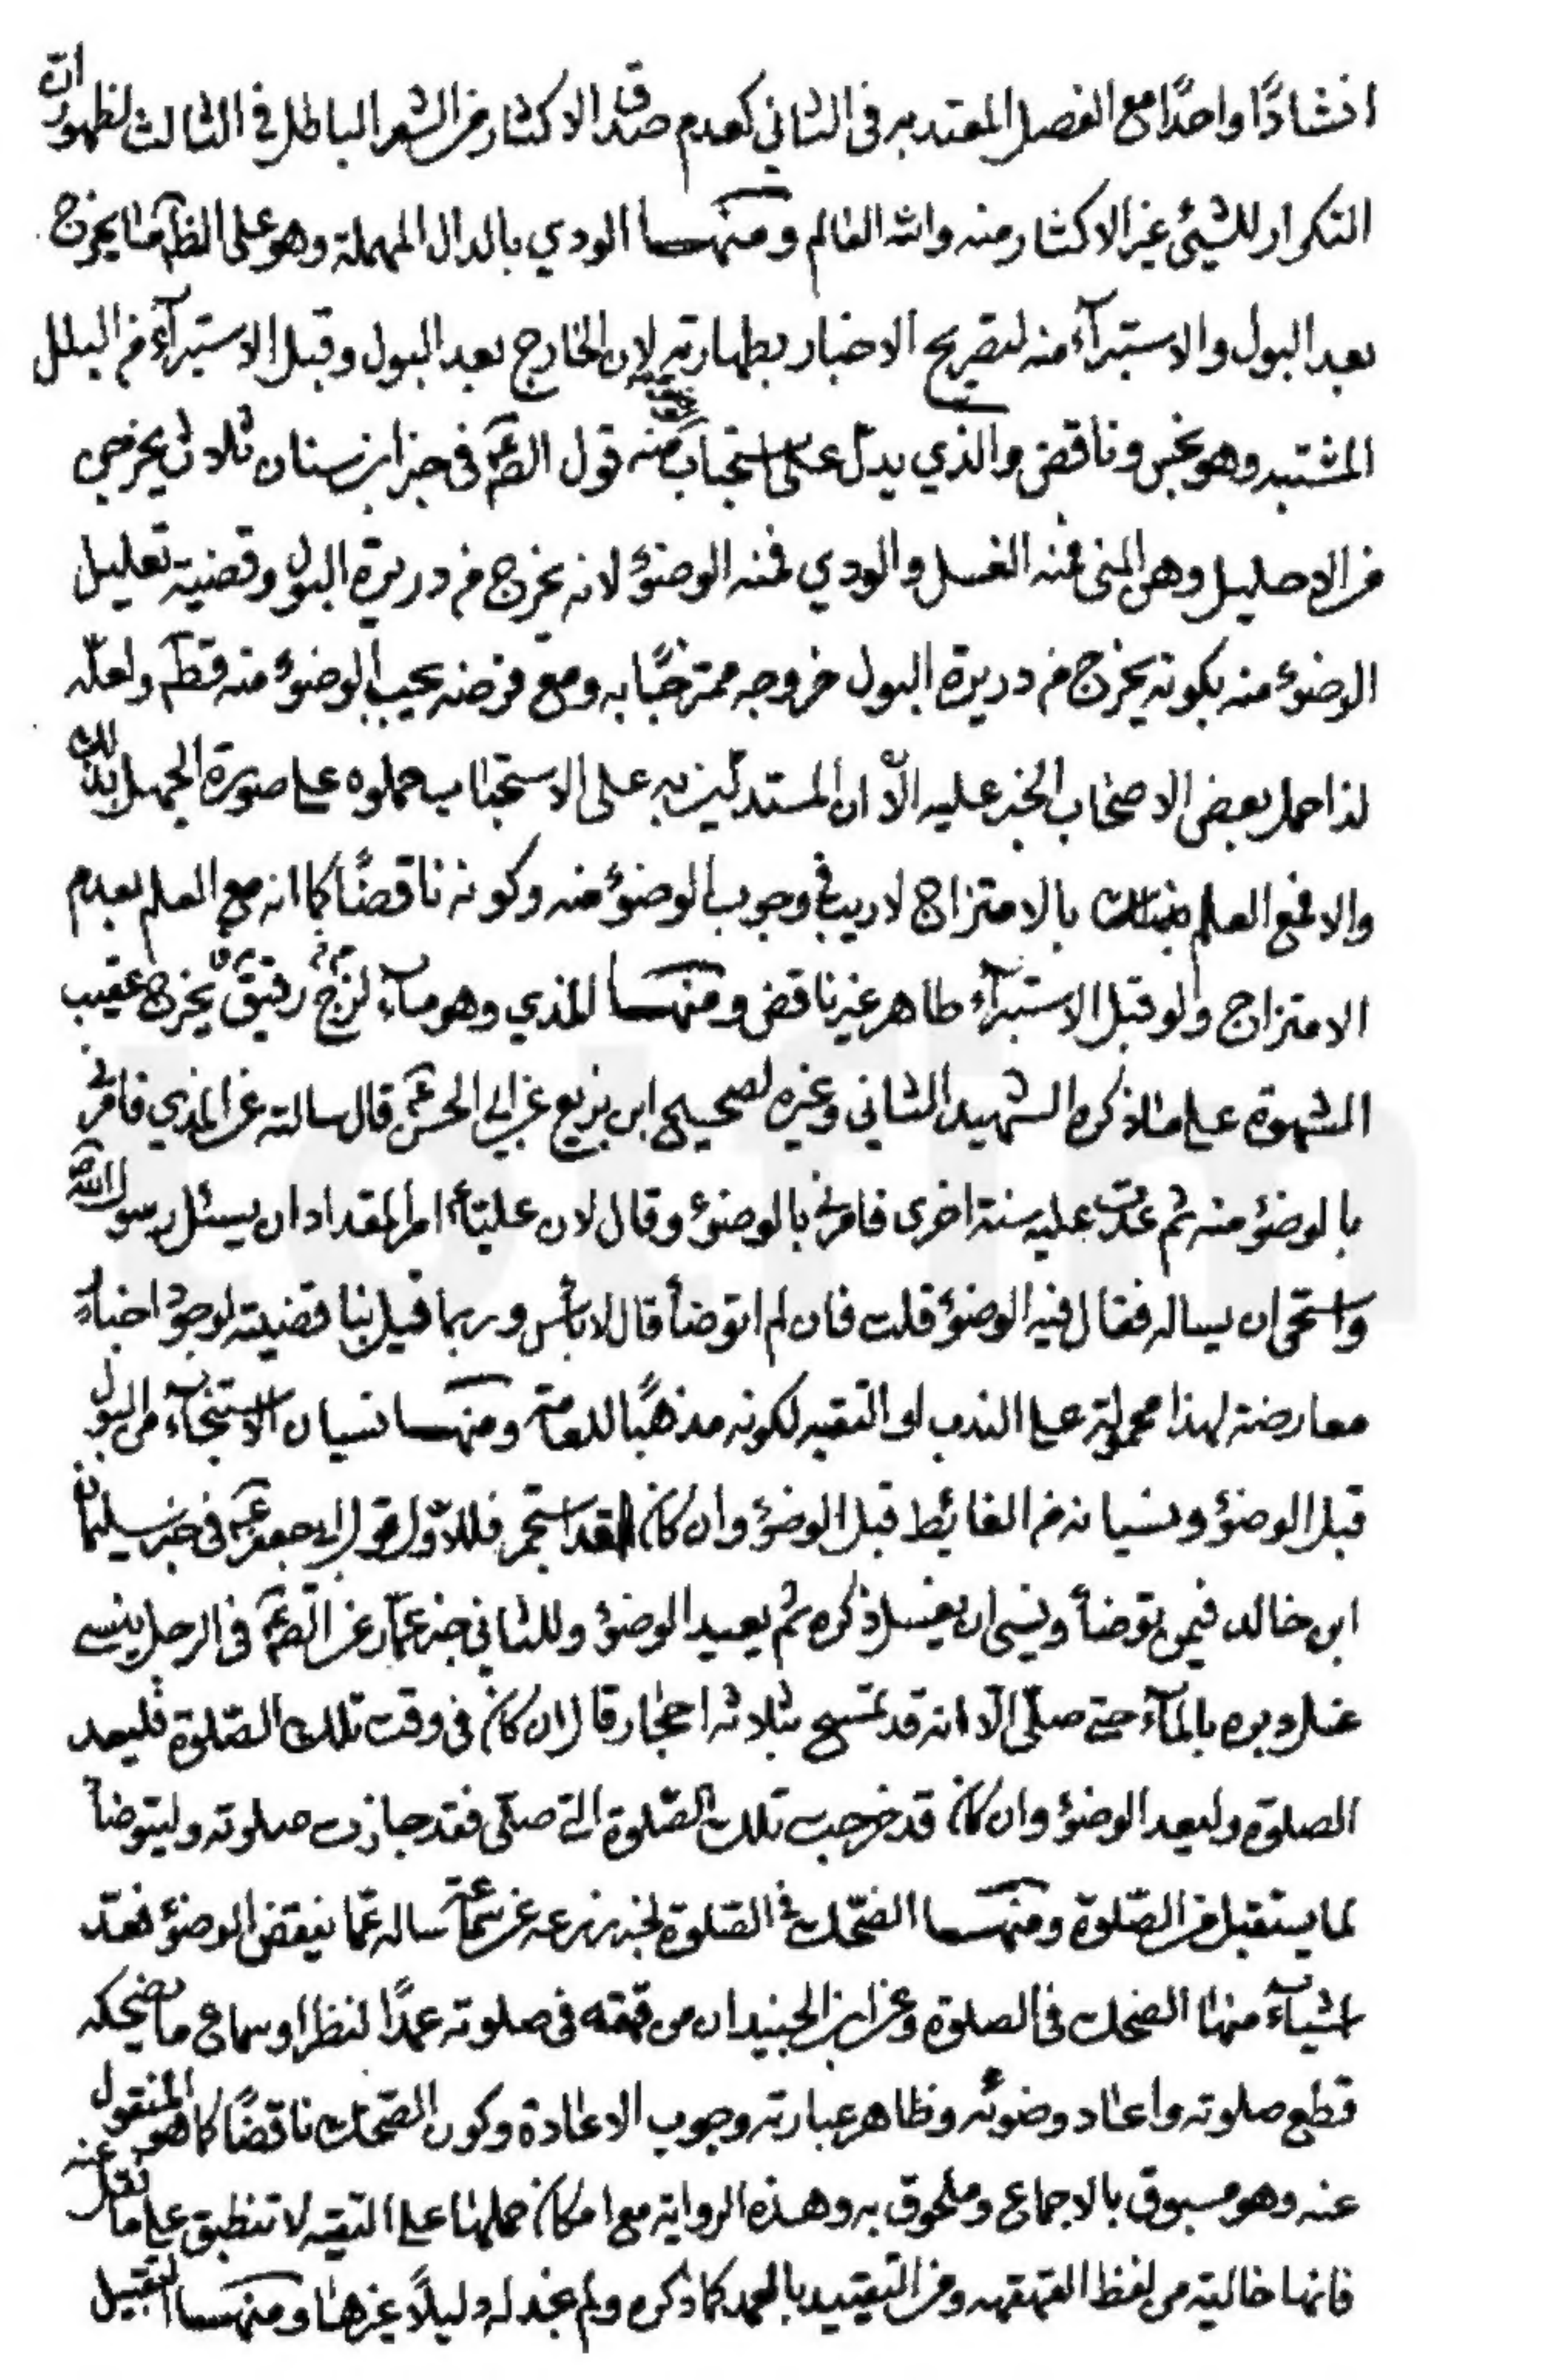 انشادًا واحدًا مع الفصل المعتد به فى الثاني كعدم صدق الاكثار من الشعر الباطل في الثالث لظهور انّ
التكرار للشيئ غير الاكثار منه والله العٰالم ومنهـا الودي بالدال المهملة وهو على الظآ مٰا يخرج
بعد البول والاستبرآء منه لتصريح الاخبار بطهارته لان الخٰارج بعد البول وقبل الاستبرآء من البلل
المشتبه وهو نجس وناقض والذي يدلّ على استحباب منه قول الصّ عم فى خبر ابن سنان ثلاث يخرجن
من الاحليل وهى المنى فمنه الغسل والودي فمنه الوضوٴ لانه يخرج من دريرة البول وقضية تعليل
الوضوٴ منه بكونه يخرج من دريرة البول خروجه ممتزجًا به ومع فرضه يجب الوضوٴ منه قطعا ولعلّه
لذا حمل بعض الاصحٰاب الخبر عليه الّا ان المستدلّين به على الاستحبٰاب حملوه على صورة الجهل بذلك
والا فمع العلم بالامتزاج لا ريب في وجوب الوضوٴ منه وكونه ناقضًا كما انه مع العلم بعدم
الامتزاج ولو قبل الاستبرآء طاهر غير ناقض ومنهـا المذي وهو مآء لزج رقيق يخرج عقيب
الشهوة على مٰا ذكره الشهيد الثاني وغيره لصحيح ابن بزيع عن ابى الحسن عم قال سالته عن المذي فامرنى
بالوضوٴ منه ثم عدت عليه سنة اخرى فامرنى بالوضوٴ وقال لان عليّاً امر المقداد ان يسئل رسول الله ص
واستحى ان يساله فقال فيه الوضوٴ قلت فان لم اتوضأ قال لا باس وربما قيل بناقضيته لوجود اخبار
معارضة لهذا محمولة على الندب او التقيه لكونه مذهبًا للعامّة ومنهـا نسيان الاستنجآء من البول
قبل الوضوٴ ونسيانه من الغائط قبل الوضوٴ وان كان قد استجمر فللاوّل قول ابى جعفر عم فى خبر سليمان
ابن خالد فيمن توضأ ونسى ان يغسل ذكره ثم يعيد الوضوٴ وللثاني خبر عمّار عن الصّ عم فى الرجل ينسى
غسل دبره بالمآء حتى صلّى الّا انه قد تمسّح بثلاثه احجٰار قال ان كان فى وقت تلك الصّلوة فليعد
الصلوة وليعد الوضوٴ وان كان قد خرجت تلك الصّلوة التى صلّى فقد جازت صلوته وليتوضأ
لما يستقبل من الصّلوة ومنهـا الضّحك في الصّلوة لخبر زرعه عن سماعة ساله عمّا ينقض الوضوٴ فعدّ
اشيآء منهٰا الضحك فى الصلوة وعن ابن الجنيد ان من قهقه فى صلوته عمدًا لنظر او سماع ما يضحكه
قطع صلوته واعٰاد وضوئه وظاهر عبارته وجوب الاعٰادة وكون الضّحك ناقضًا كما هو المنقول
عنه وهو مسبوق بالاجماع وملحوق به وهذه الرواية مع امكان حملهٰا على التقيه لا تنطبق على ما نقل عنه
فانها خالية من لفظ القهقهه ومن التقييد بالعمد كما ذكره ولم نجد له دليلًا غيرهٰا ومنهـا التقبيل